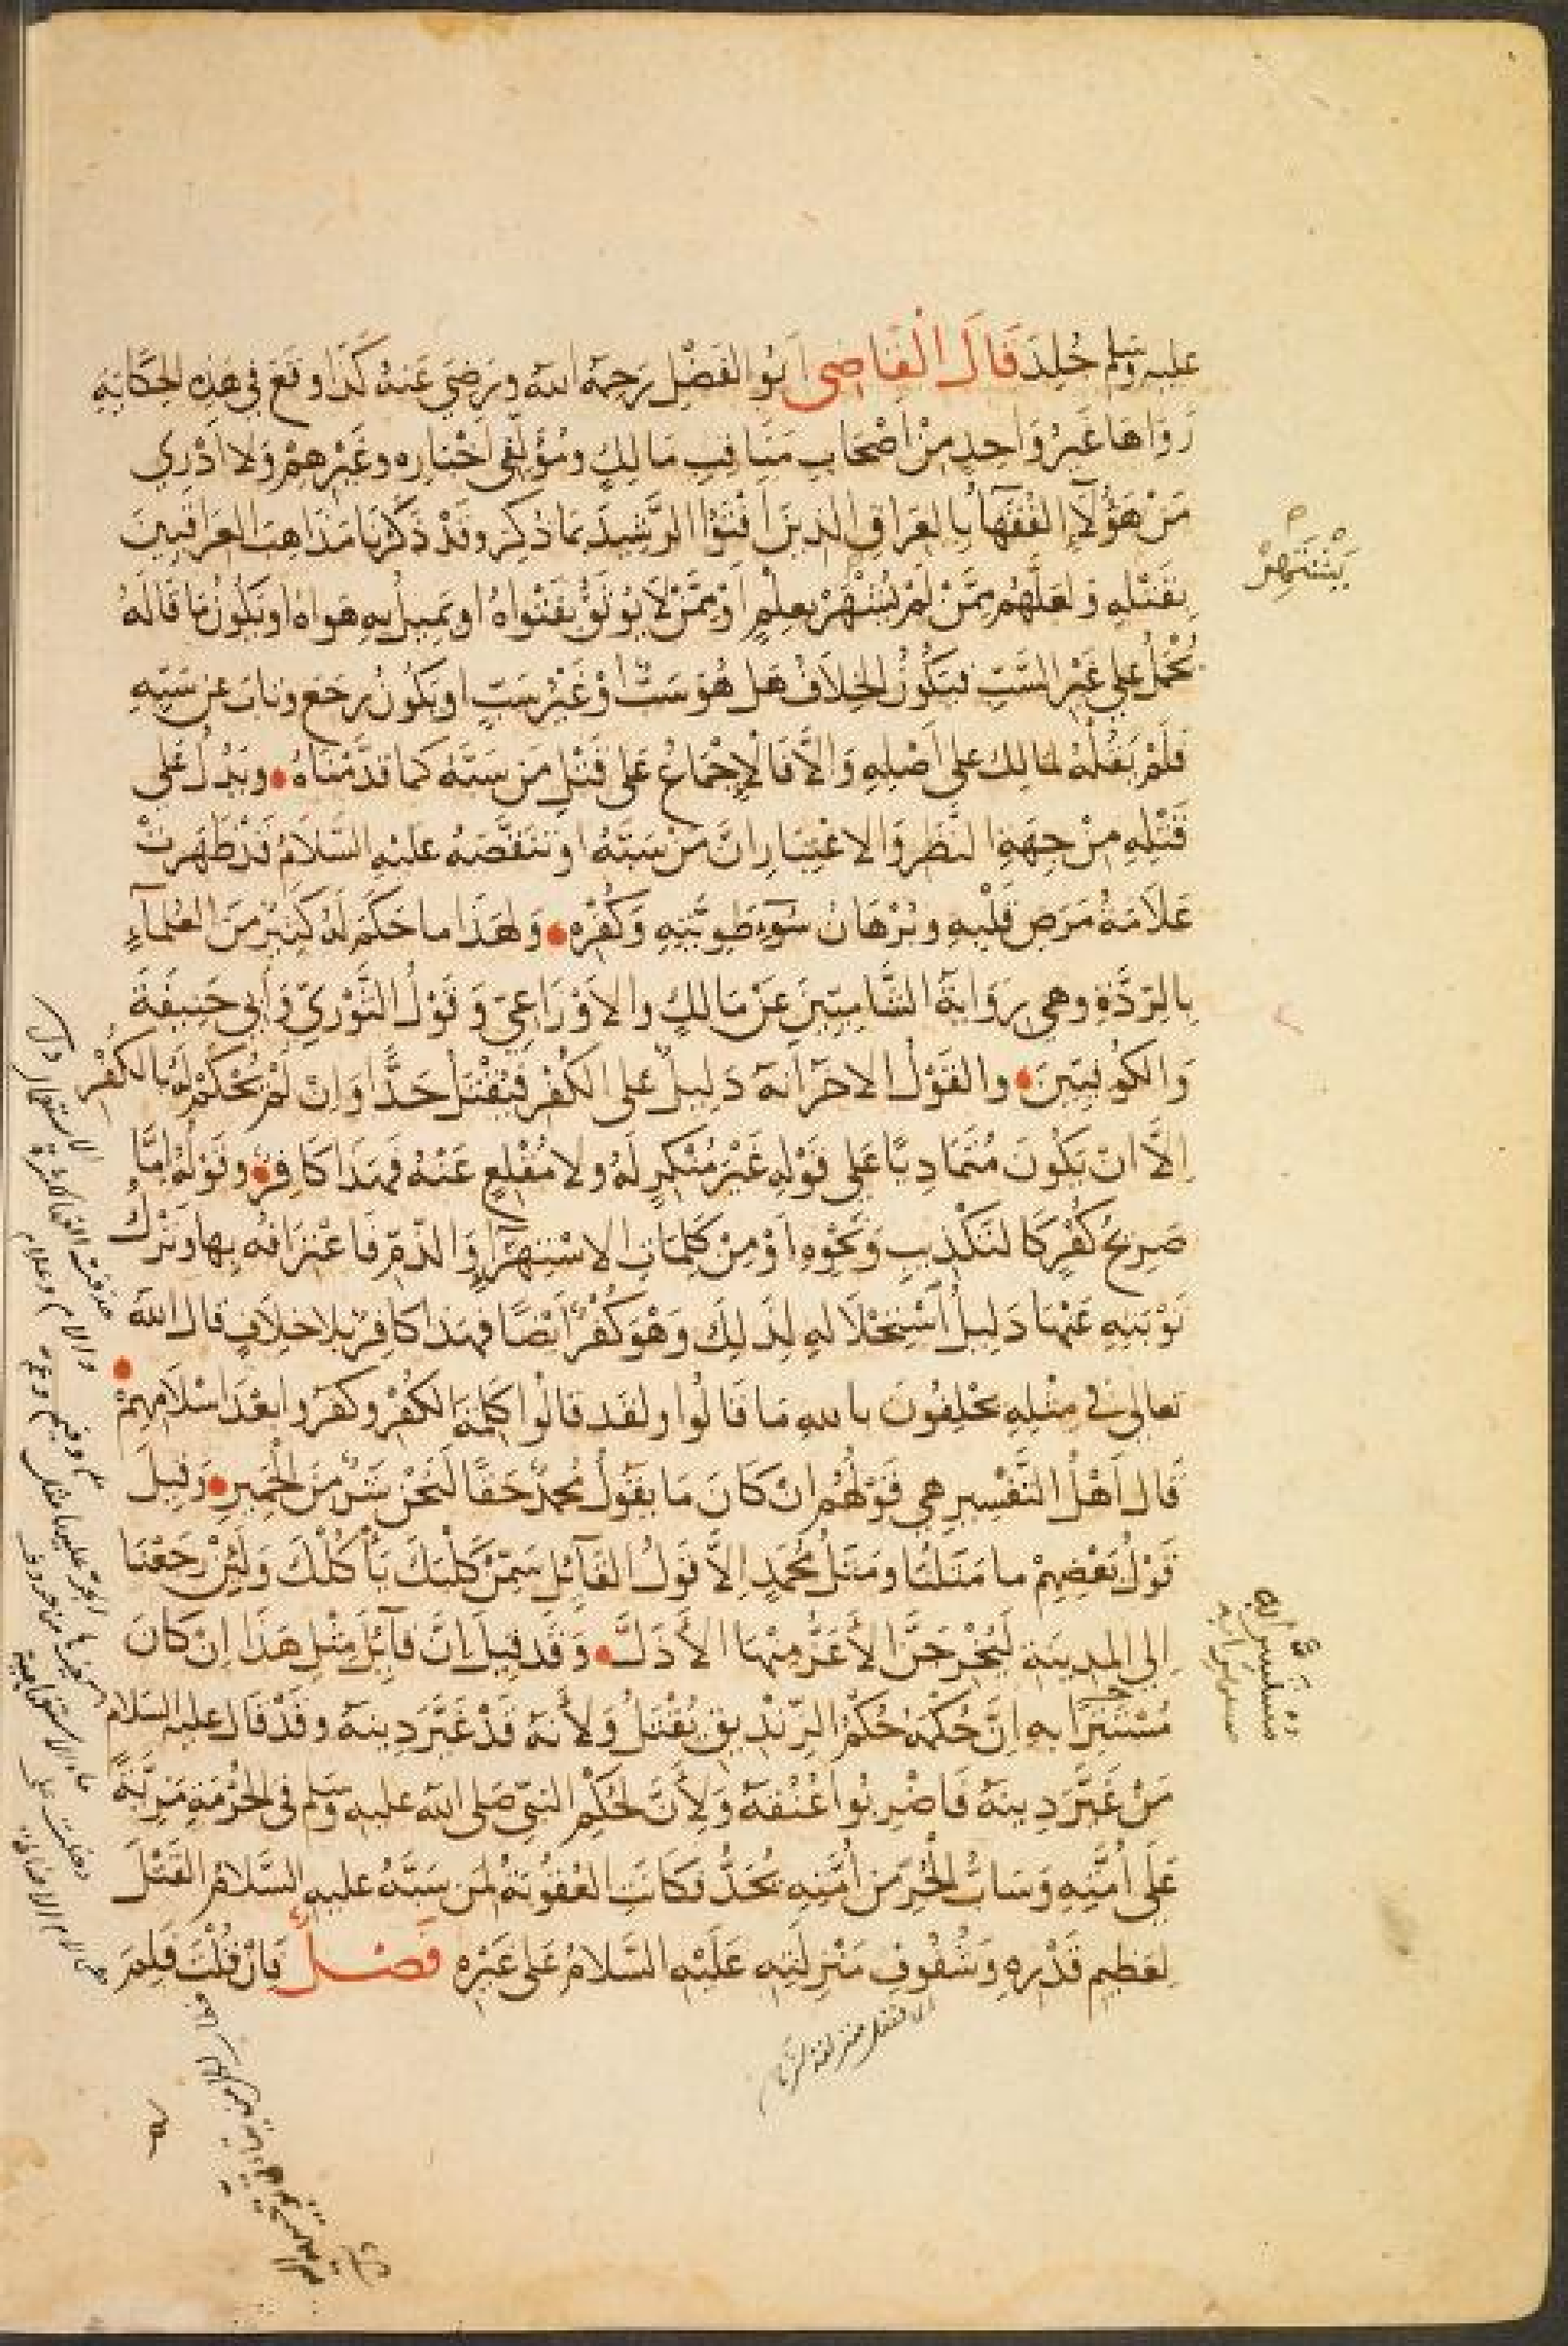 عليه وسلم جُلِدَ قَالَ الْقَاضِي أَبُو الفَضْلِ رَحِمَهُ اللهُ ورَضِيَ عَنهُ كَذَا وقَعَ في هَذِهِ الحِكَايَةِ
رَوَاهَا غَيرُ وَاحِدٍ مِنْ أصْحَابِ مَنَاقِبِ مَالِكٍ ومُؤَلِّفِي أخْبَارِهِ وغَيْرِهِمْ وَلا أدْرِي
مَنْ هَؤُلَآءِ الفُقَهَآءُ بِالعِرَاقِ الذِينَ أَفْتَوْا الرَّشِيدَ بمَا ذُكِرَ وقَدْ ذَكَرْنَا مَذَاهِبَ العِرَاقِيِينَ
بِقَتْلِهِ وَلَعَلَّهُم مِمَّنْ لَمْ يُشْهَرْ بِعِلْمٍ أَوْ مِمَّنْ لَا يُوثَقُ بِفَتْوَاهُ او يَمِيلُ بِهِ هَوَاهُ او يَكُونُ مَا قَالَهُ
يُحْمَلُ على غَيْرِ السَّبِّ فيَكُونُ الخِلَافُ هَل هُوَ سَبٌّ أَوْ غَيْرُ سَبٍّ او يَكُونُ رَجَعَ وتابَ عن سَبِّهِ
فَلَمْ يَقُلْهُ لمَالِك على أَصْلِهِ وَالَّا فَالْإِجْمَاعُ عَلى قَتْلِ مَن سَبَّهُ كما قدَّمْنَاهُ • ويَدُلُّ عَلى
قَتْلِهِ مِنْ جِهَةِ النَّظَرِ وَالاعْتِبَارِ انَّ مَنْ سَبَّهُ او تَنَقَّصَهُ عَلَيْهِ السَّلَامُ قَدْ ظَهَرَتْ
عَلَامَةُ مَرَضِ قَلْبِهِ وبُرْهَانُ سُوءِ طَوِيَّتِهِ وَكُفْرِهِ • وَلهَذَا ما حَكَمَ لَهُ كَثِيرٌ مِنَ العُلمَآءِ
بِالرِّدَّةِ وهي رِوَايَةُ الشَّامِيِّينَ عَنْ مَالِكٍ والاَوْزَاعِيّ وَقَوْلُ الثَّوْرِيّ وَأَبِي حَنِيفَةَ
وَالكُوفِيّينَ • والقَوْلُ الاخَرُ انهُ دَلِيلٌ على الكُفْرِ فيُقْتَلُ حَدًّا وَانْ لَمْ يُحْكَمْ لَهُ بالكُفْرِ
اِلَّا ان يَكُونَ مُتَمَادِيًا عَلى قَوْلِهِ غَيْرَ مُنْكِرٍ لَهُ ولا مُقْلِعٍ عَنْهُ فهَذَا كَافِرٌ • وقَوْلُهُ إمَّا
صَرِيحُ كُفْرٍ كَالتَكْذِيبِ وَنَحْوِهِ أَوْ مِنْ كَلِمَاتِ الاسْتِهْزَآءِ وَالذّمِّ فَاعْتِرَافُه بِها وتَرْكُ
تَوْبَتِهِ عَنْهَا دَلِيلُ اسْتِحْلَالِهِ لِذَلِكَ وَهْوَ كُفْرٌ أيْضًا فهَذا كافِرٌ بِلا خِلَافٍ قال اللهُ
تعالى في مِثْلِهِ يَحْلِفُونَ باللهِ مَا قَالُوا ولَقَد قالُوا كَلِمَةَ الكُفْرِ وكَفَرُوا بَعْدَ اسْلَامِهِمْ •
قَالَ أهْلُ التَّفْسِيرِ هي قَوْلُهُم انْ كَانَ مَا يَقُولُ مُحَمَّدٌ حَقًا لَنَحْنُ شَرٌّ مِنَ الْحَمِيرِ • وَقِيلَ
قَوْلُ بَعْضِهِمْ ما مَثَلُنَا ومَثَلُ مُحَمَّدٍ اِلاَّ قَولُ القَآئِلِ سَمِّنْ كَلْبَكَ يَأْكُلْكَ وَلَئِنْ رَجَعْنَا
الى المدِينَةِ لَيُخْرِجَنَّ الأَعَزُّ مِنْهَا الأَذَلَّ • وَقَد قِيلَ اِنَّ قآئِلَ مِثْلِ هَذَا إِن كَانَ
مُسْتَتِرًا بهِ اِنَّ حُكْمَهُ حُكْمُ الزِنْدِيقِ يُقْتَلُ وَلأَنهُ قَدْ غَيَّرَ دِينهُ وقَدْ قَال عليه السَلام
مَنْ غَيَّرَ دِينَهُ فَاضْرِبُوا عُنُقَهُ وَلِأَنَّ لحُكْمِ النبيّ صَلى الله عليه وسلم في الحُرْمَةِ مَزِيَّةً
عَلَى أمَّتِهِ وَسَابُّ الْحُرِّ مِنْ أُمَّتِهِ يُحَدُّ فكَانَتِ العُقُوبَةُ لمَن سَبَّهُ عليه السَّلامُ القَتْلَ
لعَظِيمِ قَدْرِهِ وَشُفُوفِ مَنْزِلَتِهِ عَلَيْهِ السَّلامُ عَلى غَيْرِهِ فَصْلٌ فَإنْ قُلْتَ فَلِمَ
يَشْتَهِرْ